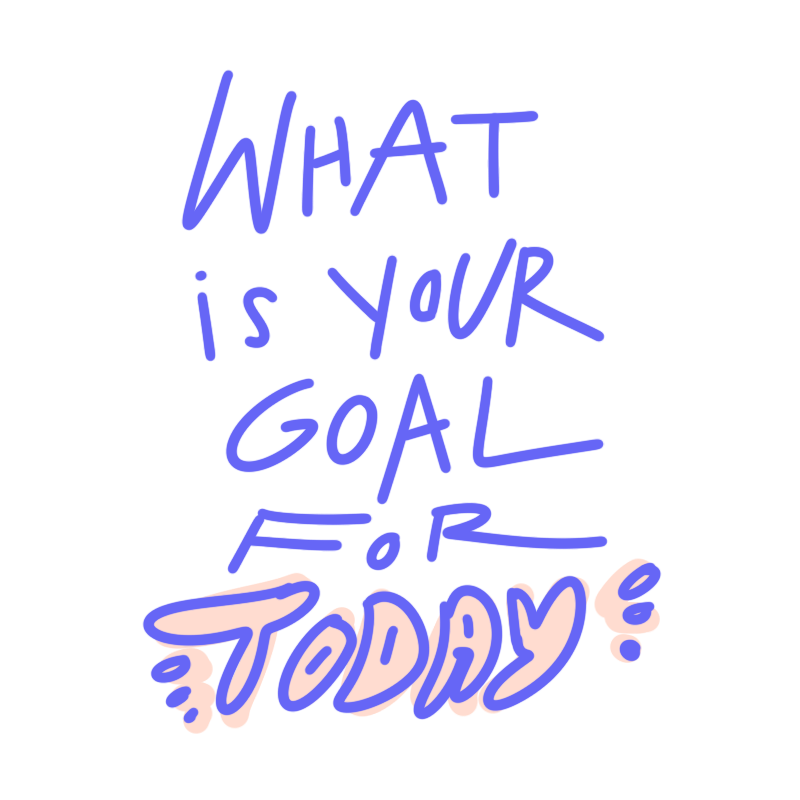 WHAT
is YOUR
GOAL
FOR
TODAY